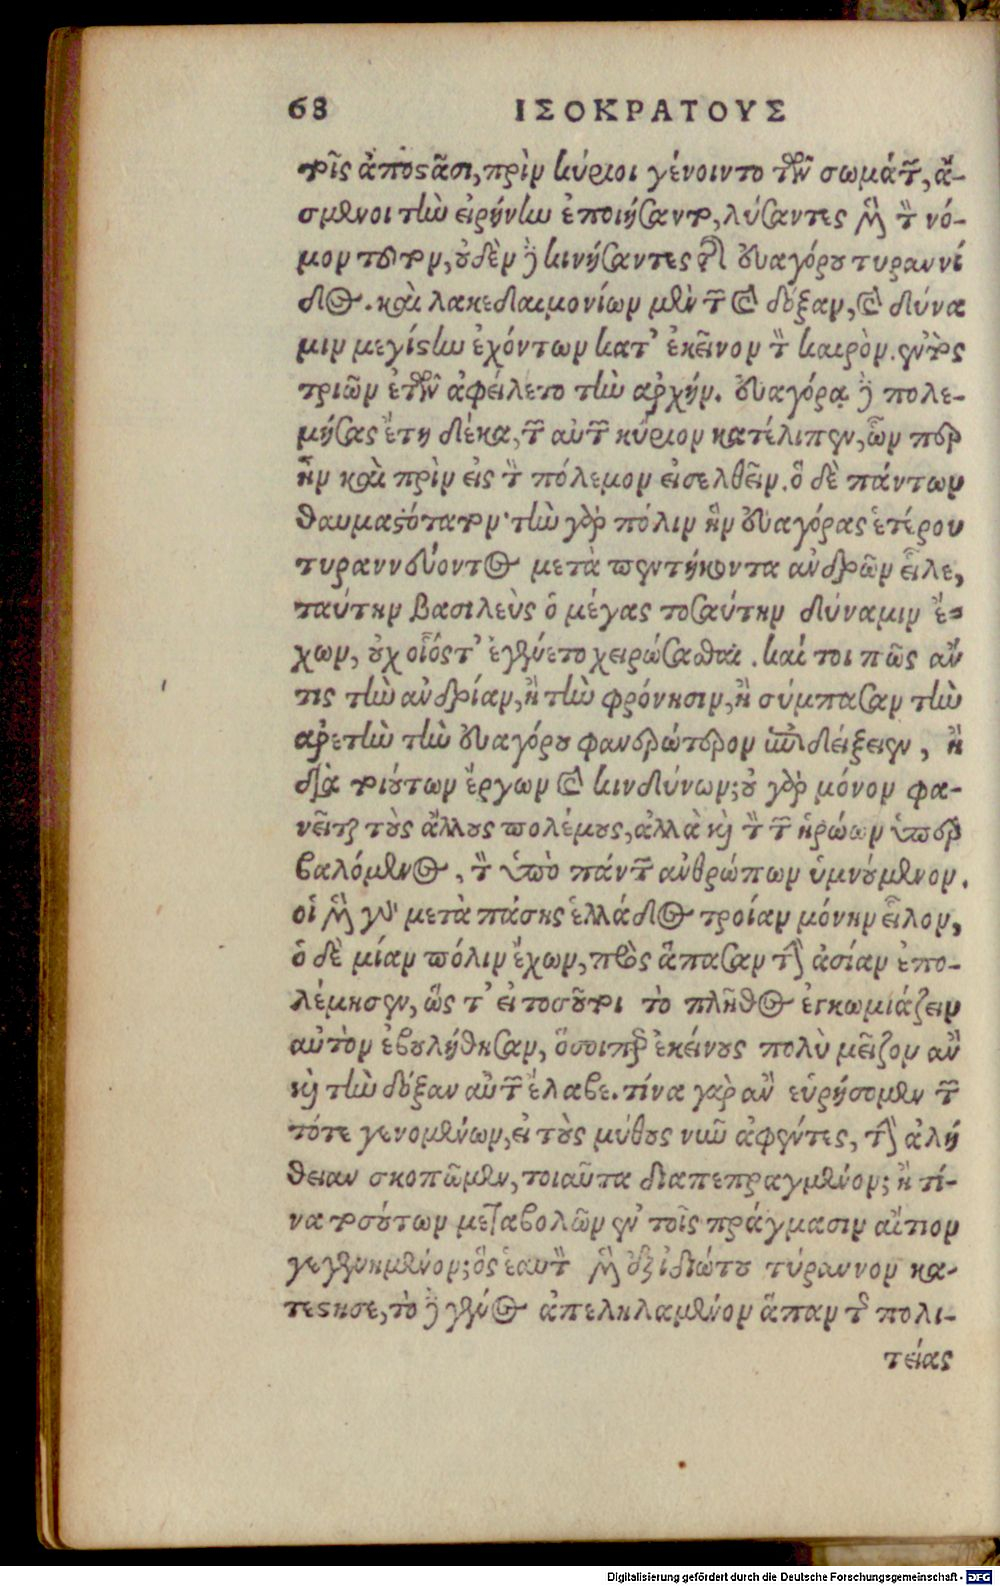 68 ΙΣΟΚΡΑΤΟΥΣ
τοῖς ἀποστᾶσι, πρὶν κύριοι γένοιντο τῶν σωμάτων, ἄ-
σμενοι τὴν εἰρήνην ἐποιήσαντο, λύσαντες μὲν τὸν νό-
μον τοῦτον, οὐδὲν δὲ κινήσαντες τῆς Εὐαγόρου τυραννί
δος. καὶ λακεδαιμονίων μὲν τῶν καὶ δόξαν, καὶ δύνα
μιν μεγίστην ἐχόντων κατ' ἐκεῖνον τὸν καιρὸν. ἐντὸς
τριῶν ἐτῶν ἀφείλετο τὴν ἀρχήν. Εὐαγόρᾳ δὲ πολε-
μήσας ἔτη δέκα, τῶν αὐτῶν κύριον κατέλιπεν, ὧν περ
ἦν καὶ πρὶν εἰς τὸν πόλεμον εἰσελθεῖν. ὃ δὲ πάντων
θαυμαστότατον· τὴν γὰρ πόλιν ἣν Εὐαγόρας ἑτέρου
τυραννεύοντος μετὰ πεντήκοντα ἀνδρῶν εἷλε,
ταύτην βασιλεὺς ὁ μέγας τοσαύτην δύναμιν ἔ-
χων, οὐχ οἷός τ' ἐγένετο χειρώσασθαι. καί τοι πῶς ἄν
τις τὴν ἀνδρίαν, ἢ τὴν φρόνησιν, ἢ σύμπασαν τὴν
ἀρετὴν τὴν Εὐαγόρου φανερώτερον ἐπιδείξειεν, ἢ
διὰ τοιούτων ἔργων καὶ κινδύνων; οὐ γὰρ μόνον φα-
νεῖται τοὺς ἄλλους πολέμους, ἀλλὰ καὶ τὸν τῶν ἡρώων ὑπερ
βαλόμενος, τὸν ὑπὸ πάντων ἀνθρώπων ὑμνούμενον.
οἱ μὲν γὰρ μετὰ πάσης ἑλλάδος τροίαν μόνην εἷλον,
ὁ δὲ μίαν πόλιν ἔχων, πρὸς ἅπασαν τὴν ἀσίαν ἐπο-
λέμησεν, ὥς τ' εἰ τοσοῦτοι τὸ πλῆθος ἐγκωμιάζειν
αὐτὸν ἐβουλήθησαν, ὅσοιπερ ἐκείνους πολὺ μεῖζον ἂν
καὶ τὴν δόξαν αὐτῶν ἔλαβε. τίνα γὰρ ἂν εὑρήσομεν τῶν
τότε γενομένων, εἰ τοὺς μύθους νιῶ ἀφέντες, τὴν ἀλή
θειαν σκοποῖμεν, τοιαῦτα διαπεπραγμένον; ἢ τί-
να τοσούτων μεταβολῶν ἐν τοῖς πράγμασιν αἴτιον
γεγενημένον; ὃς ἑαυτὸν μὲν ἐξ ἰδιώτου τύραννον κα-
τέστησε, τὸ δὲ γένος ἀπεληλαμένον ἅπαν τῆς πολι-
τείας
Digitalisierung gefördert durch die Deutsche Forschungsgemeinschaft - DFG